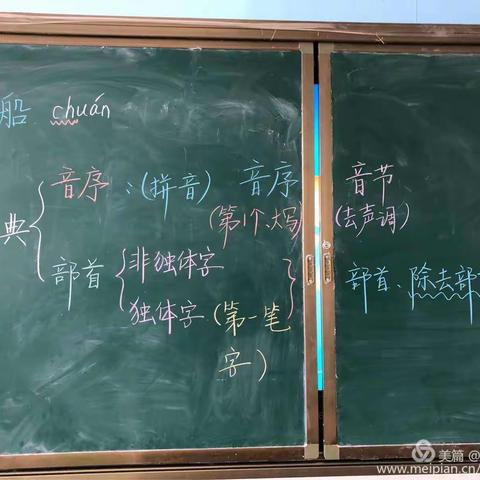 船 chuán
音序：(拼音) 音序 音节
(第1个、大写) (去声调)
典
部首 非独体字 部首、除去部
独体字 (第一笔
字)
美篇 @
www.meipian.cn/